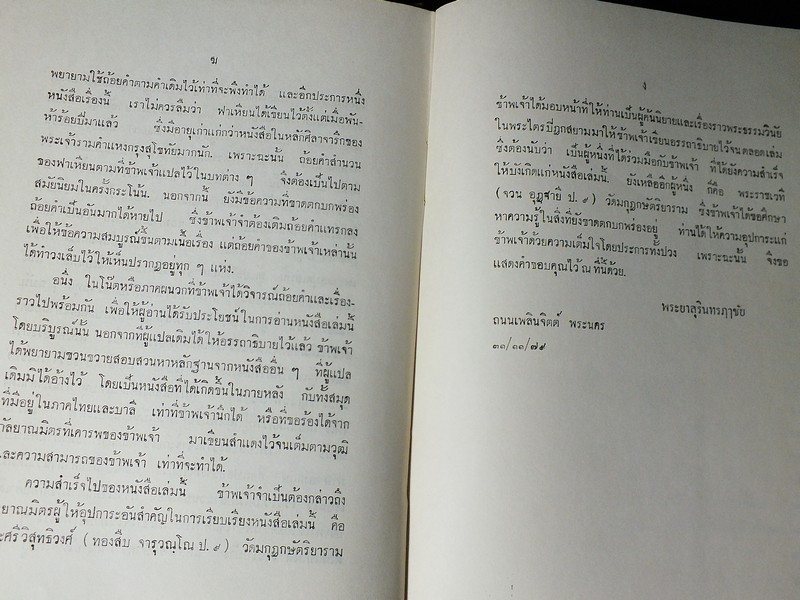 ฆ
พยายามใช้ถ้อยคำตามคำเดิมไว้เท่าที่จะพึงทำได้ และอีกประการหนึ่ง
หนังสือเรื่องนี้ เราไม่ควรลืมว่า ฟาเหียนได้เขียนไว้ตั้งแต่เมื่อพัน-
ห้าร้อยปีมาแล้ว ซึ่งมีอายุเก่าแก่กว่าหนังสือในหลักศิลาจารึกของ
พระเจ้ารามคำแหงกรุงสุโขทัยมากนัก. เพราะฉะนั้น ถ้อยคำสำนวน
ของฟาเหียนตามที่ข้าพเจ้าแปลไว้ในบทต่าง ๆ จึงต้องเป็นไปตาม
สมัยนิยมในครั้งกระโน้น. นอกจากนี้ ยังมีข้อความที่ขาดตกบกพร่อง
ถ้อยคำเป็นอันมากได้หายไป ซึ่งข้าพเจ้าจำต้องเติมถ้อยคำแทรกลง
เพื่อให้ข้อความสมบูรณ์ขึ้นตามเนื้อเรื่อง แต่ถ้อยคำของข้าพเจ้าเหล่านั้น
ได้ทำวงเล็บไว้ให้เห็นปรากฏอยู่ทุก ๆ แห่ง.
อนึ่ง ในโน๊ตหรือภาคผนวกที่ข้าพเจ้าได้วิจารณ์ถ้อยคำและเรื่อง-
ราวไปพร้อมกัน เพื่อให้ผู้อ่านได้รับประโยชน์ในการอ่านหนังสือเล่มนี้
โดยบริบูรณ์นั้น นอกจากที่ผู้แปลเดิมได้ให้อรรถาธิบายไว้แล้ว ข้าพเจ้า
ได้พยายามขวนขวายสอบสวนหาหลักฐานจากหนังสืออื่น ๆ ที่ผู้แปล
เดิมมิได้อ้างไว้ โดยเป็นหนังสือที่ได้เกิดขึ้นในภายหลัง กับทั้งสมุด
ที่มีอยู่ในภาคไทยและบาลี เท่าที่ข้าพเจ้านึกได้ หรือที่ขอร้องได้จาก
กัลยาณมิตรที่เคารพของข้าพเจ้า มาเขียนสำแดงไว้จนเต็มตามวุฒิ
และความสามารถของข้าพเจ้า เท่าที่จะทำได้.
ความสำเร็จไปของหนังสือเล่มนี้ ข้าพเจ้าจำเป็นต้องกล่าวถึง
ยาณมิตรผู้ให้อุปการะอันสำคัญในการเรียบเรียงหนังสือเล่มนี้ คือ
ศรีวิสุทธิวงศ์ (ทองสืบ จารุวณฺโณ ป. ๙) วัดมกุฎกษัตริยาราม
ง
ข้าพเจ้าได้มอบหน้าที่ให้ท่านเป็นผู้ค้นนิยายและเรื่องราวพระธรรมวินัย
ในพระไตรปิฎกสยามมาให้ข้าพเจ้าเขียนอรรถาธิบายไว้จนตลอดเล่ม
ซึ่งต้องนับว่า เป็นผู้หนึ่งที่ได้ร่วมมือกับข้าพเจ้า ที่ได้ยังความสำเร็จ
ให้บังเกิดแก่หนังสือเล่มนี้. ยังเหลืออีกผู้หนึ่ง ก็คือ พระราชเวที
(จวน อุฏฺฐายี ป. ๙) วัดมกุฎกษัตริยาราม ซึ่งข้าพเจ้าได้ขอศึกษา
หาความรู้ในสิ่งที่ยังขาดตกบกพร่องอยู่ ท่านได้ให้ความอุปการะแก่
ข้าพเจ้าด้วยความเต็มใจโดยประการทั้งปวง เพราะฉะนั้น จึงขอ
แสดงคำขอบคุณไว้ ณ ที่นี้ด้วย.
พระยาสุรินทรฦๅชัย
ถนนเพลินจิตต์ พระนคร
๓๑/๑๑/๗๙